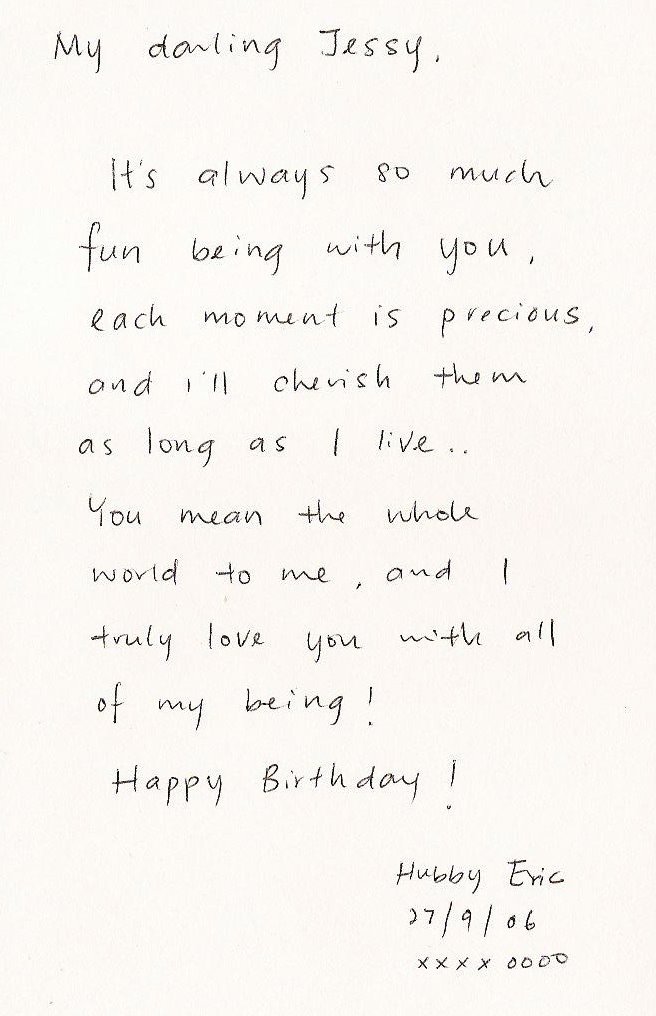 My darling Jessy,
It's always so much
fun being with you,
each moment is precious,
and i'll cherish them
as long as I live..
You mean the whole
world to me, and I
truly love you with all
of my being!
Happy Birthday!
Hubby Eric
27/9/06
xxxx oooo